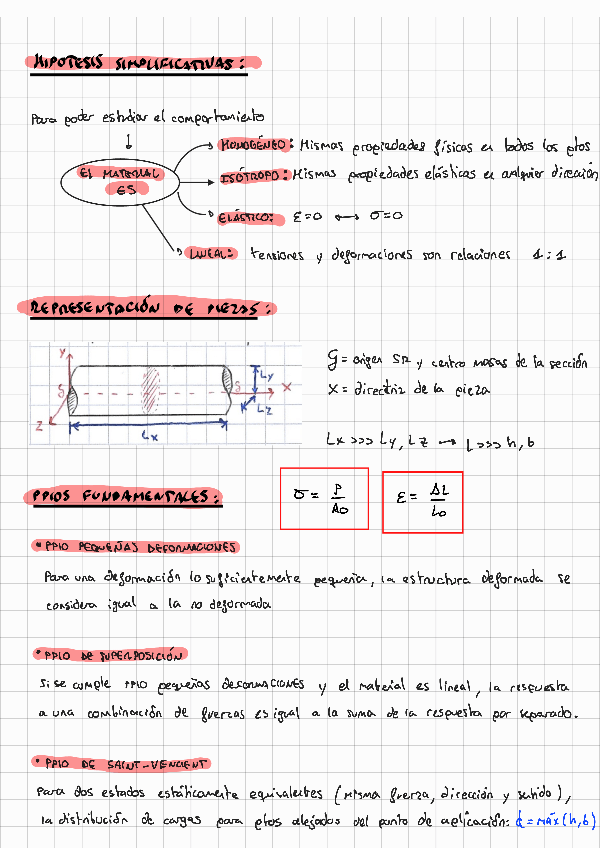 HIPOTESIS SIMPLIFICATIVAS:
Para poder estudiar el comportamiento
↓
EL MATERIAL
ES
HOMOGÉNEO: Mismas propiedades físicas en todos los ptos
ISÓTROPO: Mismas propiedades elásticas en cualquier dirección
ELÁSTICO: ε=0 ↔ σ=0
LINEAL: tensiones y deformaciones son relaciones 1:1
REPRESENTACIÓN DE PIEZAS:
Y
G
Z
Ly
G
X
Lz
Lx
G = origen SR y centro masas de la sección
X = directriz de la pieza
Lx >>> Ly, Lz → L>>> h, b
PPIOS FUNDAMENTALES:
σ = P/A0
ε = ΔL/L0
• PPIO PEQUEÑAS DEFORMACIONES
Para una deformación lo suficientemente pequeña, la estructura deformada se
considera igual a la no deformada
• PPIO DE SUPERPOSICIÓN
Si se cumple PPIO pequeñas DEFORMACIONES y el material es lineal, la respuesta
a una combinación de fuerzas es igual a la suma de la respuesta por separado.
• PPIO DE SAINT-VENCIENT
Para dos estados estáticamente equivalentes (misma fuerza, dirección y sentido),
la distribución de cargas para ptos alejados del punto de aplicación: d = máx(h,b)